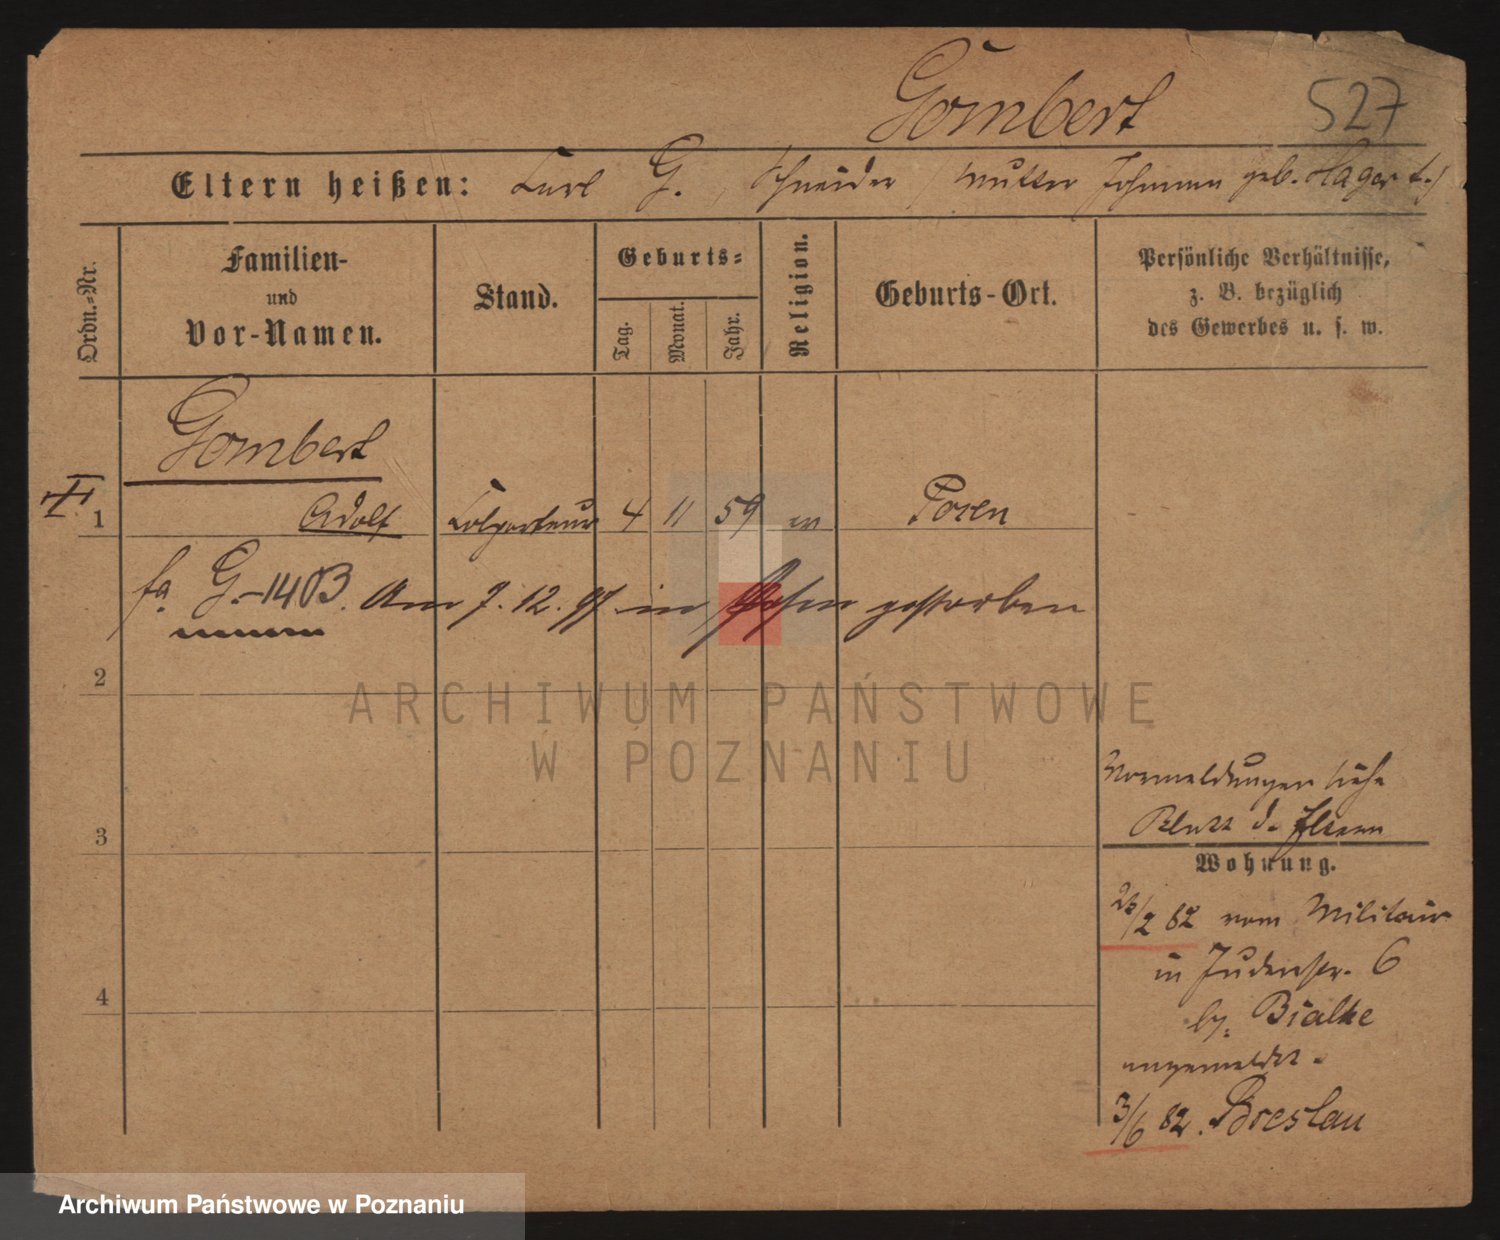 Gombert 527
Eltern heißen: Carl G. Schneider, Mutter geb. Hager
Ordn.-Nr.
Familien-
und
Vor-Namen.
Stand.
Geburts-
Tag.
Monat.
Jahr.
Religion.
Geburts-Ort.
Persönliche Verhältnisse,
z. B. bezüglich
des Gewerbes u. s. w.
Gombert
1 Adolf Colporteur 4 11 59 Posen
fa G.-1403. Am 7. 12. 97 in Posen gestorben
2
ARCHIWUM PAŃSTWOWE
W POZNANIU
Vormeldungen siehe
Blatt d. Eltern
3
Wohnung.
/2 82 vom Militair
in Judenstr. 6
by. Bialke
angemeldet.
4
3/6 82. Breslau
Archiwum Państwowe w Poznaniu